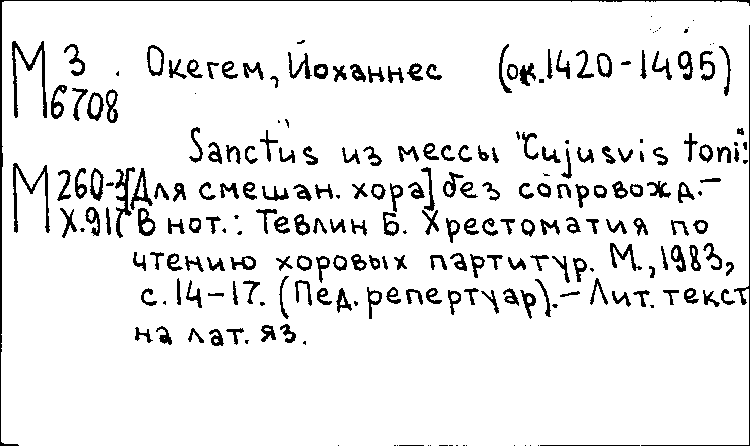 М 3 . Окегем, Йоханнес (ок. 1420-1495)
6708
Sanctus из мессы "Cujusvis toni":
М 260-3 [Для смешан. хора] без сопровожд.–
Х.917 В нот.: Тевлин Б. Хрестоматия по
чтению хоровых партитур. М., 1983,
с. 14-17. (Пед. репертуар).– Лит. текст
на лат. яз.